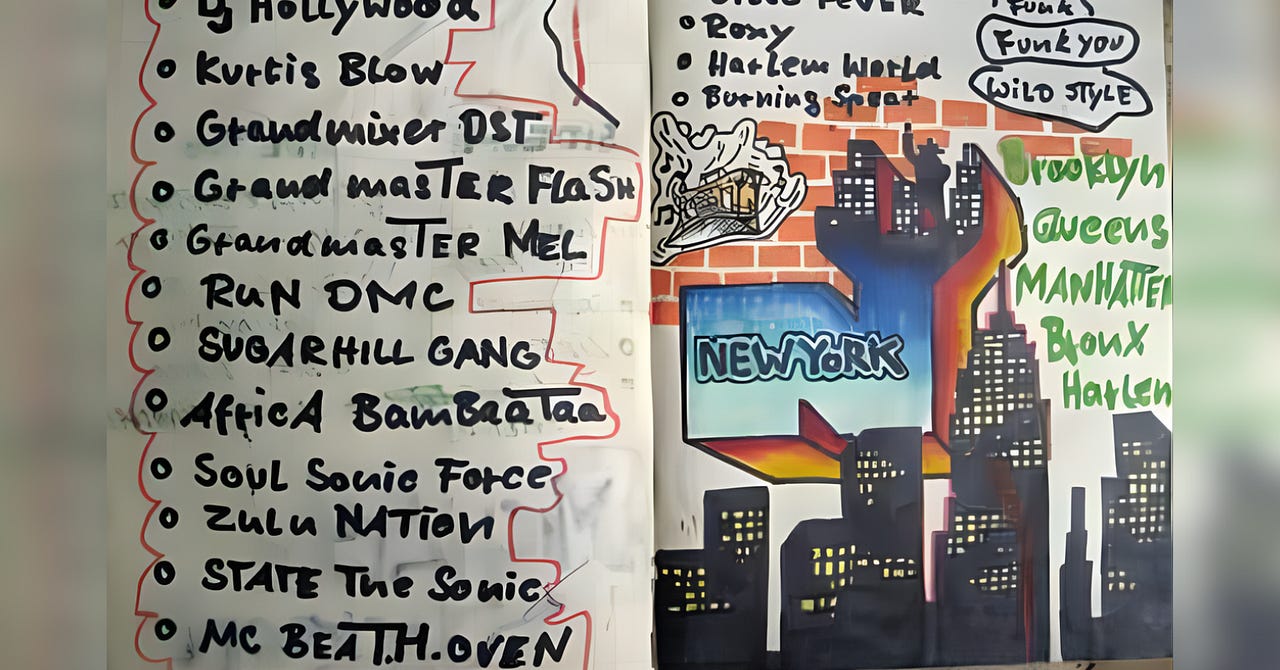 DJ Hollywood
Kurtis Blow
Grandmixer DST
Grand masTER FLaSH
GrandmasTER MEL
RuN DMC
SUGARHILL GANG
AfricA BamBaaTaa
Soul Sonic Force
Zulu NATion
STATE The Sonic
MC BEAT.H.OVEN
FEVER
Roxy
Harlem World
Burning Spear
Funk
Funk you
WiLD STYLE
NEW YORK
Brooklyn
Queens
MANHATTEN
Bronx
Harlem